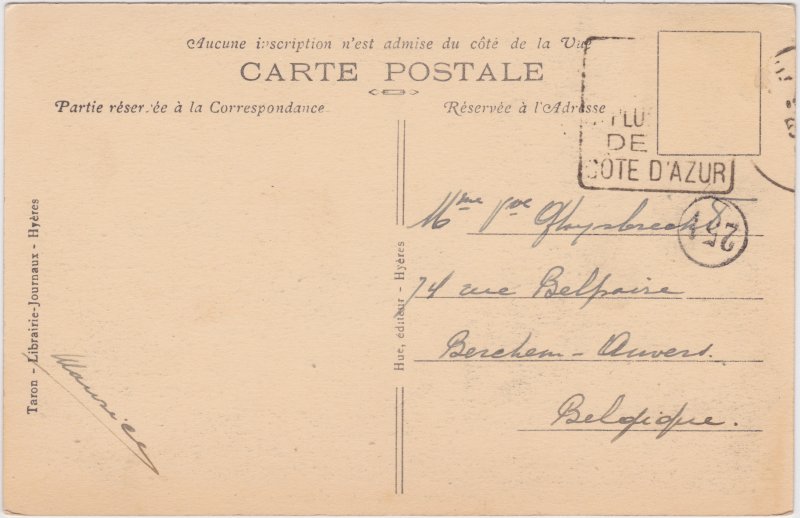 Aucune inscription n'est admise du côté de la Vue
CARTE POSTALE
Partie réservée à la Correspondance
Réservée à l'Adresse
PLU
DE
CÔTE D'AZUR
Mme Vve
25
74 rue Belpaire
Berchem - Anvers.
Belgique.
Hue, éditeur - Hyères
Taron - Librairie-Journaux - Hyères
Maurice